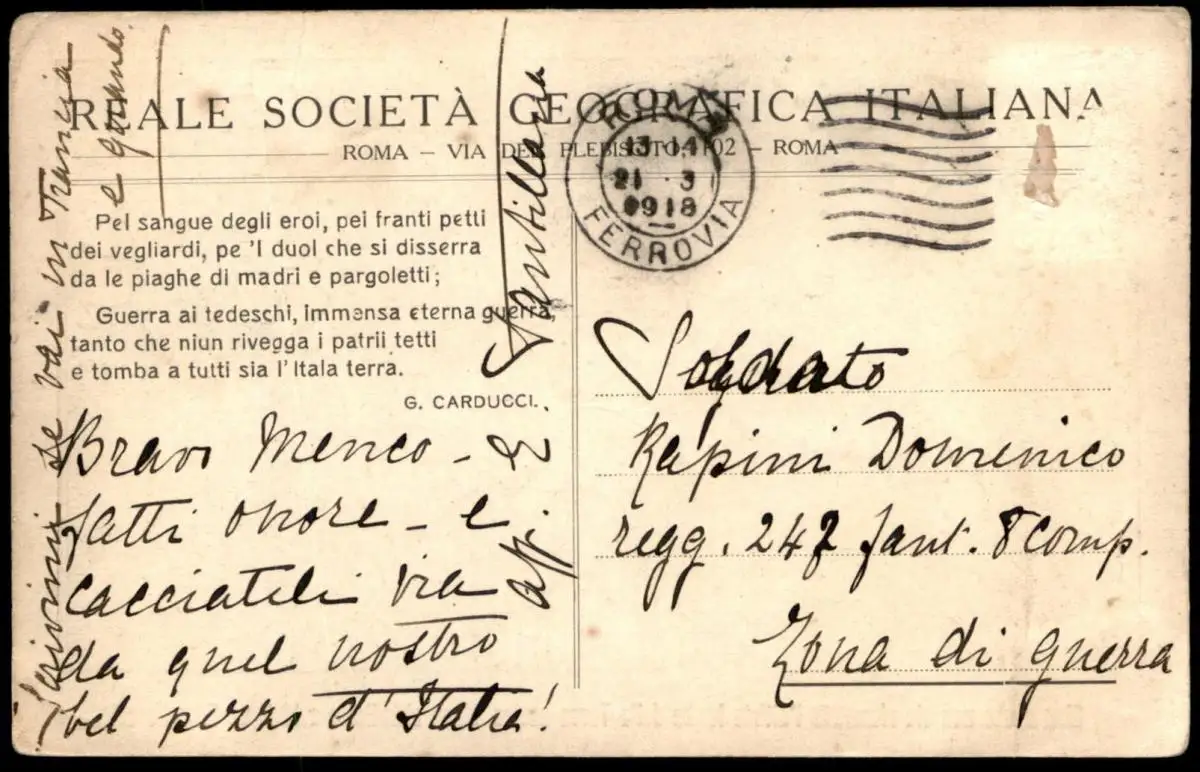 REALE SOCIETÀ GEOGRAFICA ITALIANA
ROMA – VIA DEL PLEBISCITO, 102 – ROMA
ROMA
13 14
21 3
1918
FERROVIA
Pel sangue degli eroi, pei franti petti
dei vegliardi, pe 'l duol che si disserra
da le piaghe di madri e pargoletti;
Guerra ai tedeschi, immensa eterna guerra,
tanto che niun rivegga i patrii tetti
e tomba a tutti sia l'Itala terra.
G. CARDUCCI.
Bravo Menco –
fatti onore – e
cacciateli via
da quel nostro
bel pezzo d'Italia!
Scrivimi se vai in Francia
e quando
aff. E Santillana
Soldato
Rapini Domenico
regg. 247 fant. 8 Comp.
Zona di guerra